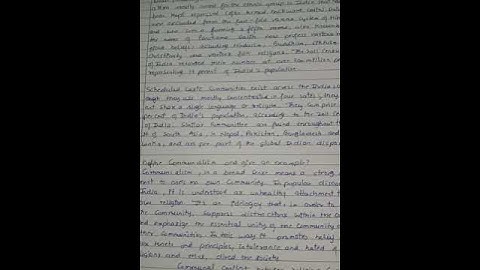 mostly used for the ethnic group in India that has
been kept repressed (often termed backward caste). Dalits
were excluded from the four-fold varna system of Hindu
and were seen as forming a fifth varna, also known
the name of Panchama. Dalits now profess various
religious beliefs including Hinduism, Buddhism, Sikhism,
Christianity and various folk religions. The 2011 Census
of India recorded their number at over 200 million people
representing 16 percent of India's population.
Scheduled Caste Communities exist across the India,
though they are mostly concentrated in four states, they
not share a single language or religion. They comprise
percent of India's population, according to the 2011 Census
of India. Similar Communities are found throughout the
of South Asia, in Nepal, Pakistan, Bangladesh and
Lanka, and are part of the global Indian diaspora
Define Communalism and give an example?
Communalism, in a broad sense means a strong
to one's own Community. In popular discourse
India, It is understood as unhealthy attachment to
own religion. It's an ideology that, in order to
the Community, suppress distinctions within the
and emphasize the essential unity of one Community
other Communities. In this way it promotes belief
tenets and principles, Intolerance and hatred of
religions and thus, divides the society.
Communal Conflict between religious